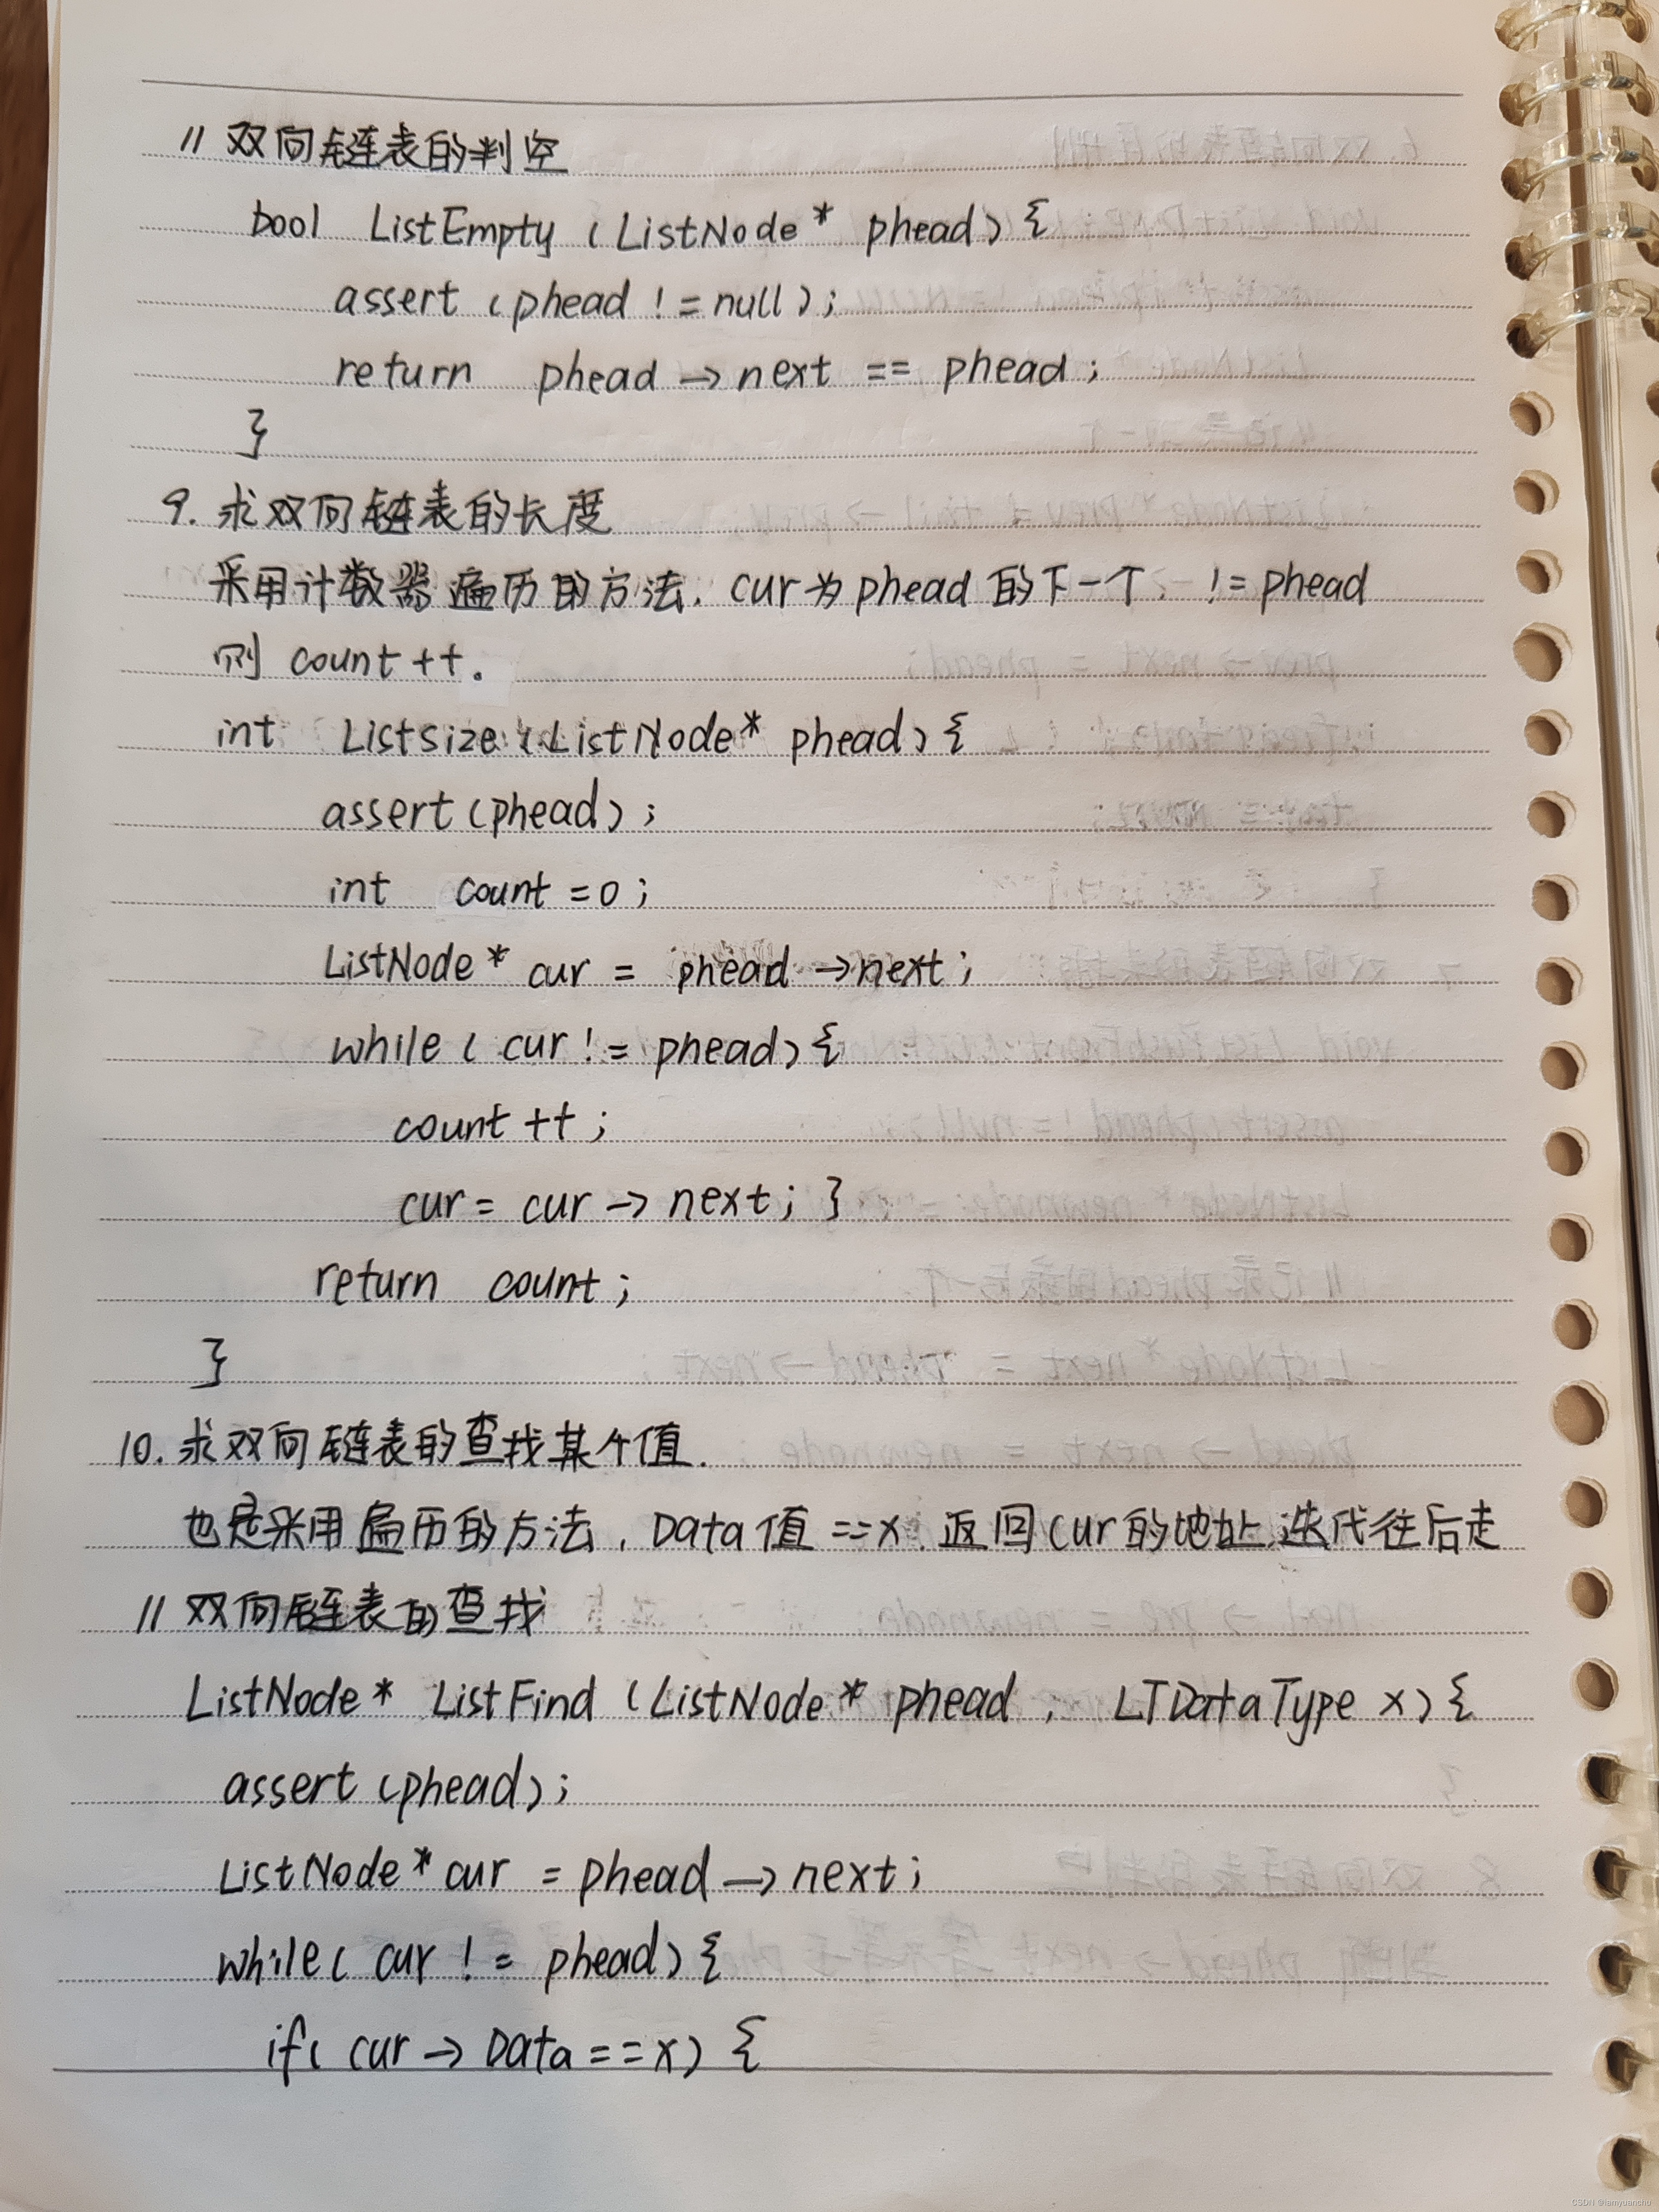 // 双向链表的判空
bool ListEmpty (ListNode* phead) {
assert (phead != null);
return phead → next == phead;
}
9. 求双向链表的长度
采用计数器遍历的方法, cur为phead的下一个, != phead
则 count ++。
int Listsize (ListNode* phead) {
assert (phead);
int count = 0;
ListNode* cur = phead → next;
while ( cur != phead) {
count ++;
cur = cur → next; }
return count;
}
10. 求双向链表的查找某个值.
也是采用遍历的方法, Data值 ==x, 返回cur的地址,迭代往后走
// 双向链表的查找
ListNode* ListFind (ListNode* phead, LTDataType x) {
assert (phead);
ListNode* cur = phead → next;
while ( cur != phead) {
if ( cur → Data == x) {
CSDN @iamyuanchu